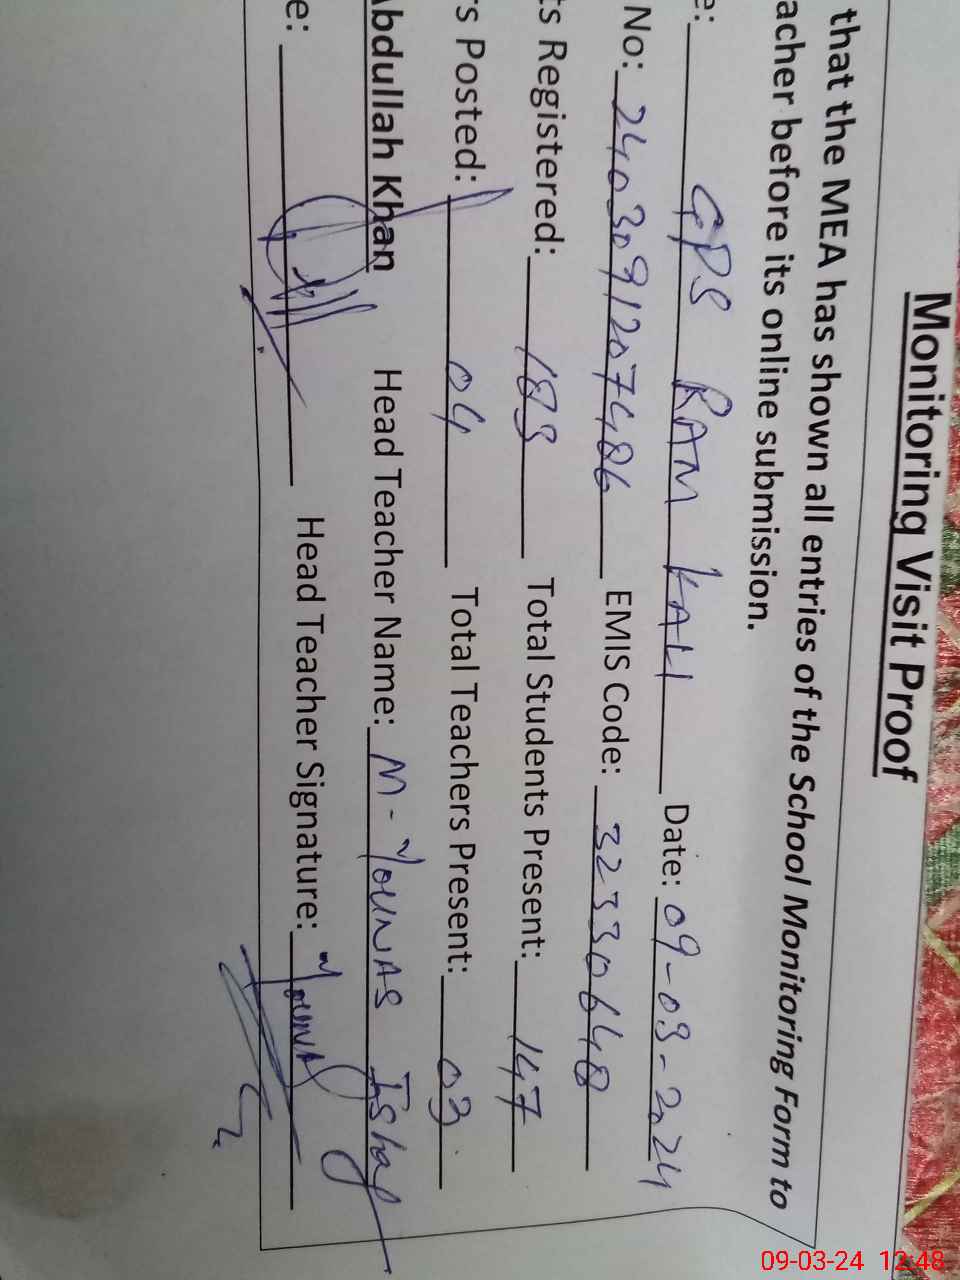 Monitoring Visit Proof
that the MEA has shown all entries of the School Monitoring Form to
acher before its online submission.
e: GPS RAM KALI Date: 09-03-2024
No: 2403091207486 EMIS Code: 32330648
ts Registered: 183 Total Students Present: 147
rs Posted: 04 Total Teachers Present: 03
Abdullah Khan Head Teacher Name: M-YOUNAS Ishaq
e: Head Teacher Signature: Younas
09-03-24 12:48